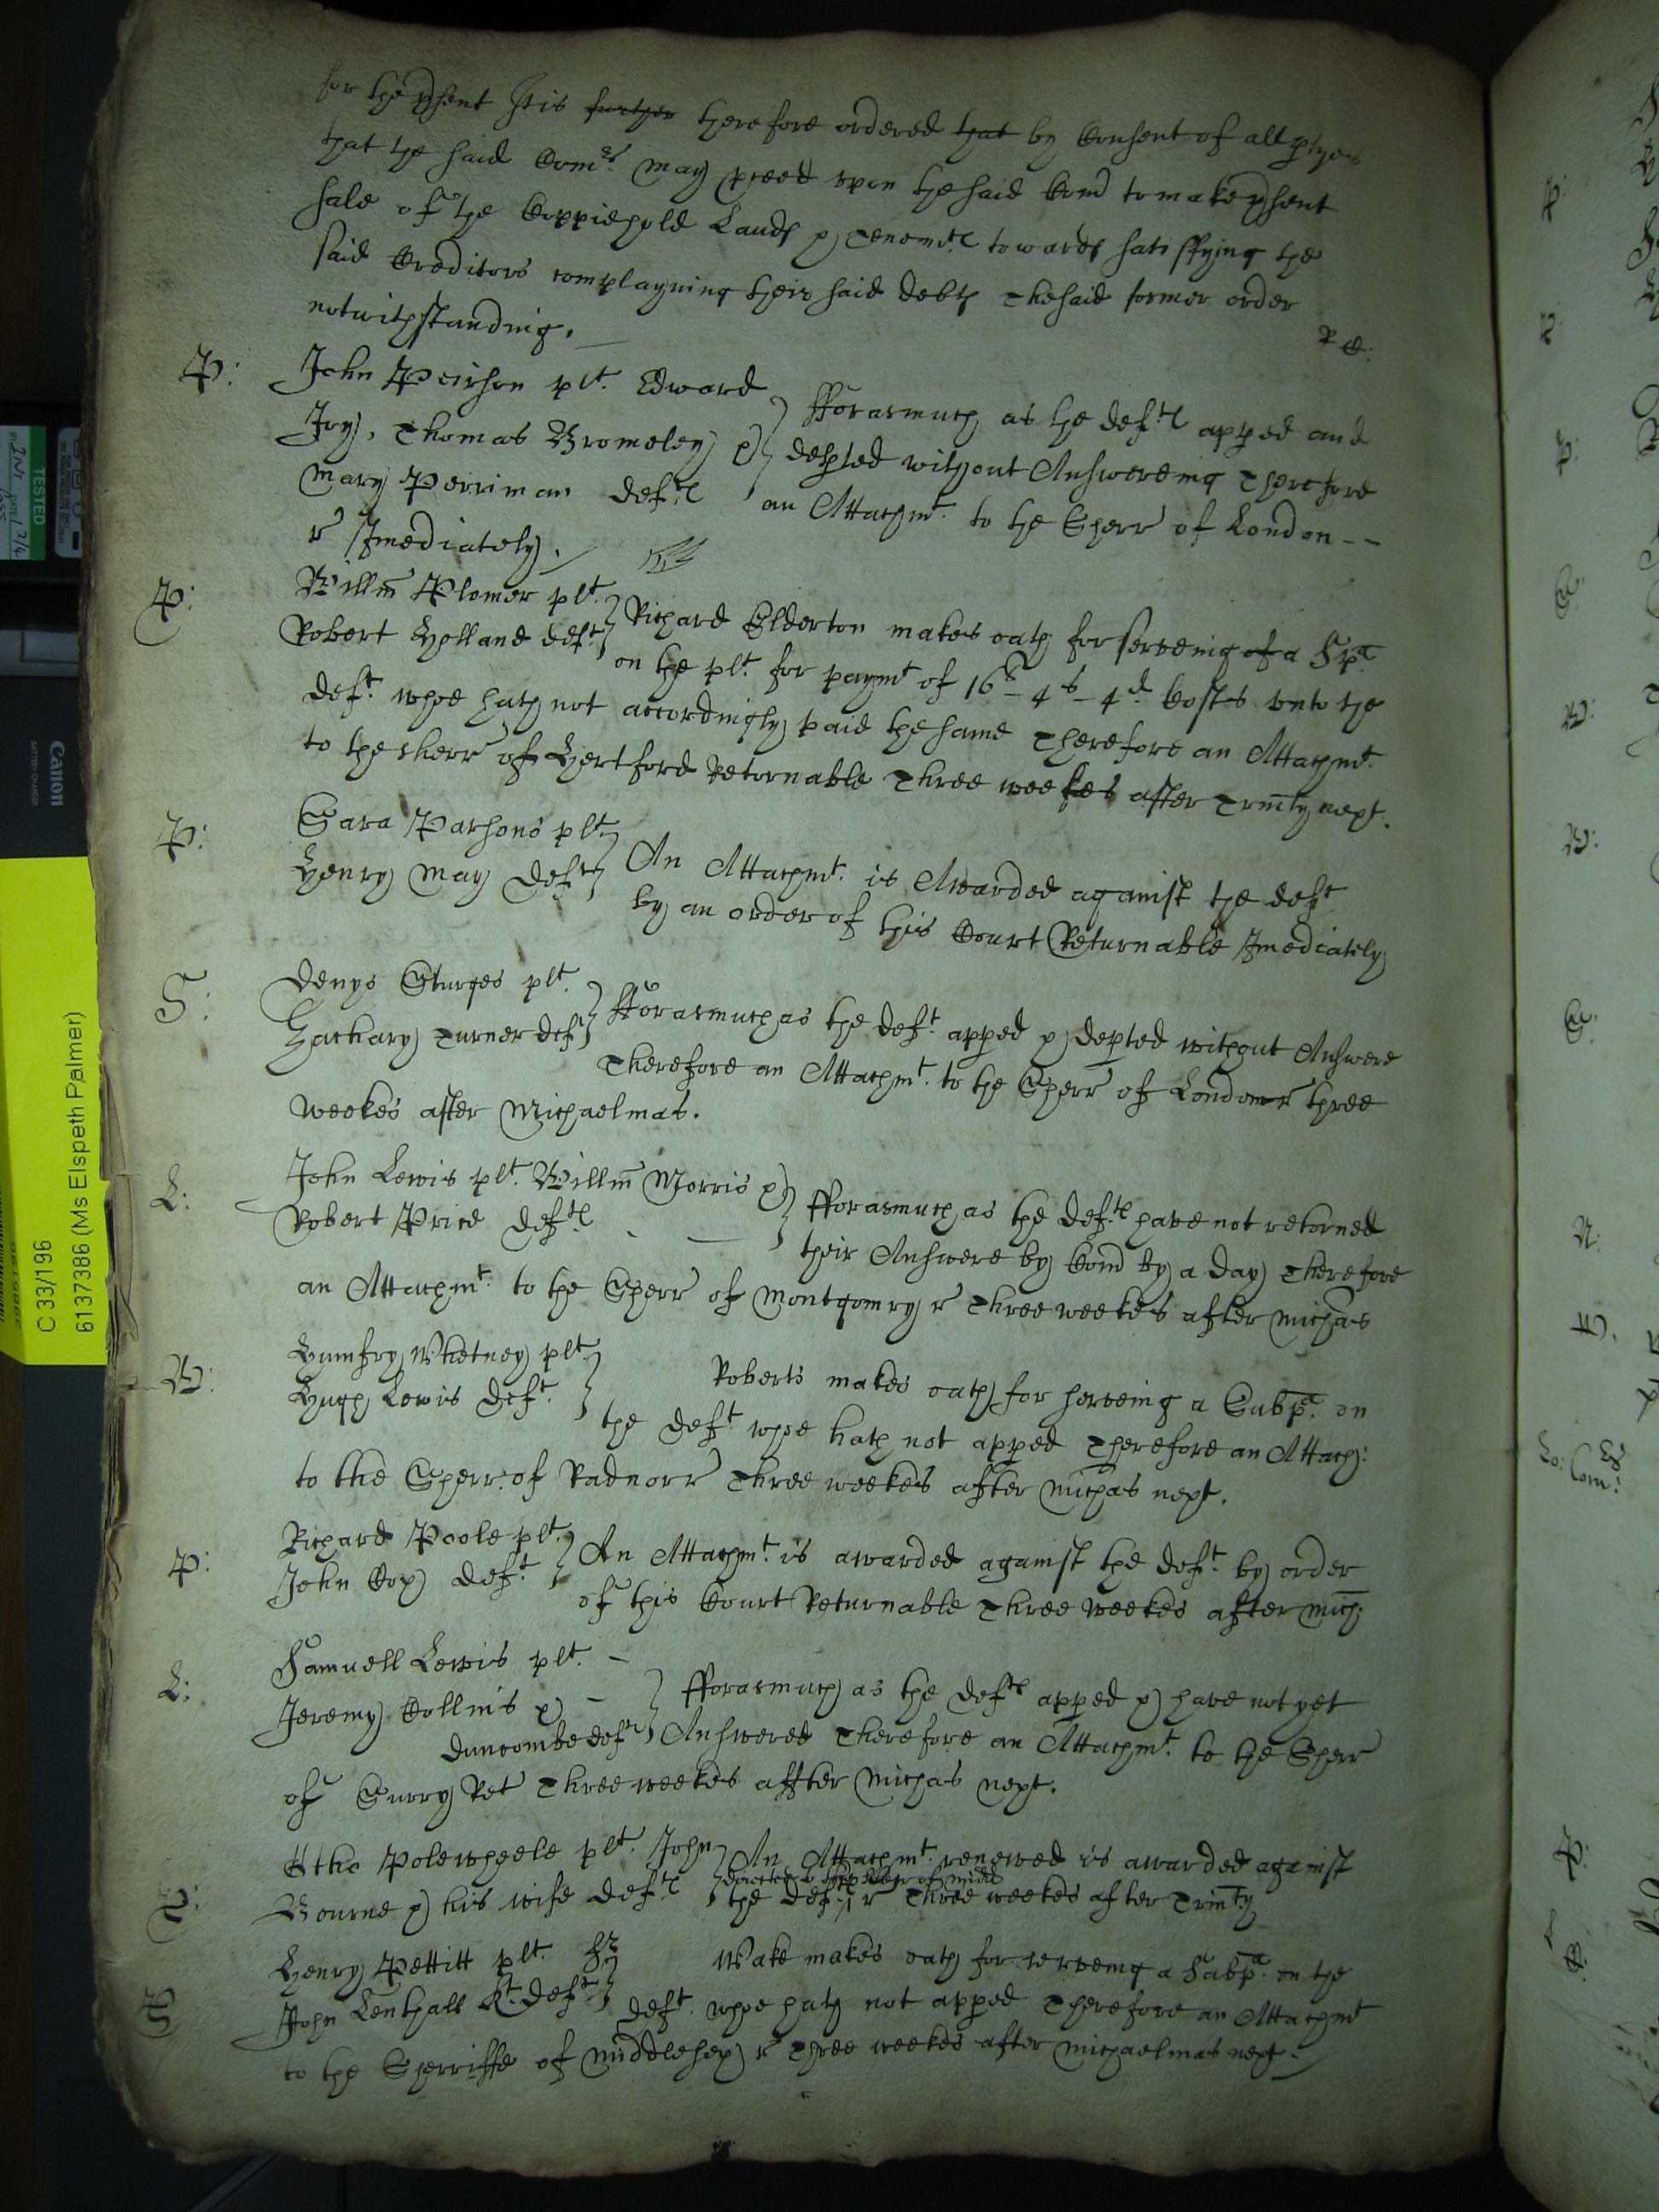 for the psent It is further therefore ordered that by Consent of all ptyes
that the said Comrs. may pceed upon the said Comd to make psent
sale of the Coppiehold Lands & Tenemts towards satisfying the
said Creditors complayning their said debts The said former order
notwithstanding.
P: John Peirson plt. Edward
Joy, Thomas Bromeley &
Mary Perriman defts
fforasmuch as the defts apped and
depted without Answereing Therefore
an Attachmt. to the Sherr of London --
r Imediately.
P: Willm Plomer plt.
Robert Holland deft
Richard Elderton makes oath for serveing of a Spa
on the plt. for paymt of 16li - 4s - 4d. Costes unto the
deft. whoe hath not accordingly paid the same Therefore an Attachmt.
to the sherr of Hertford Retornable Three weekes after Trinity next.
P: Sara Parsons plt
Henry May deft
An Attachmt. is Awarded against the deft
by an order of this Court Returnable Imediatily
S: Denys Sturges plt.
Zachary Turner deft
fforasmuch as the deft. apped & depted without Answere
Therefore an Attachmt. to the Sherr of London r three
weekes after Michaelmas.
L: John Lewis plt. Willm Morris &
Robert Price defts
fforasmuch as the defts have not retorned
their Answere by Comd by a day Therefore
an Attachmt. to the Sherr of Montgomry r Three weekes after Michas
W: Humfry Whetney plt
Hugh Lewis deft.
Roberts makes oath for serveing a Subpa. on
the deft whoe hath not apped Therefore an Attach:
to the Sherr. of Radnor r Three weekes after Michas next.
P: Richard Poole plt.
John Cox deft.
An Attachmt. is awarded against the deft. by order
of this Court Returnable Three weekes after Mich:
L: Samuell Lewis plt. -
Jeremy Collins & -
Duncombe defts
fforasmuch as the defts apped & have not yet
Answered Therefore an Attachmt. to the Sherr
of Surry Ret Three weekes affter Michas next.
P: Otho Polewheele plt. John
Bourne & his wife defts
An Attachmt. renewed is awarded against
directed to the Sherr of Midd
the defts r Three weekes after Trinty
P: Henry Pettitt plt. Sr
John Lenthall Kt. deft
Wake makes oath for serveing a Subpa. on the
deft. whoe hath not apped Therefore an Attachmt
to the Sherriffe of Middlesex r Three weekes after Michaelmas next.
TESTED
DATE
Canon
BATTERY CHARGER
C 33/196
6137386 (Ms Elspeth Palmer)